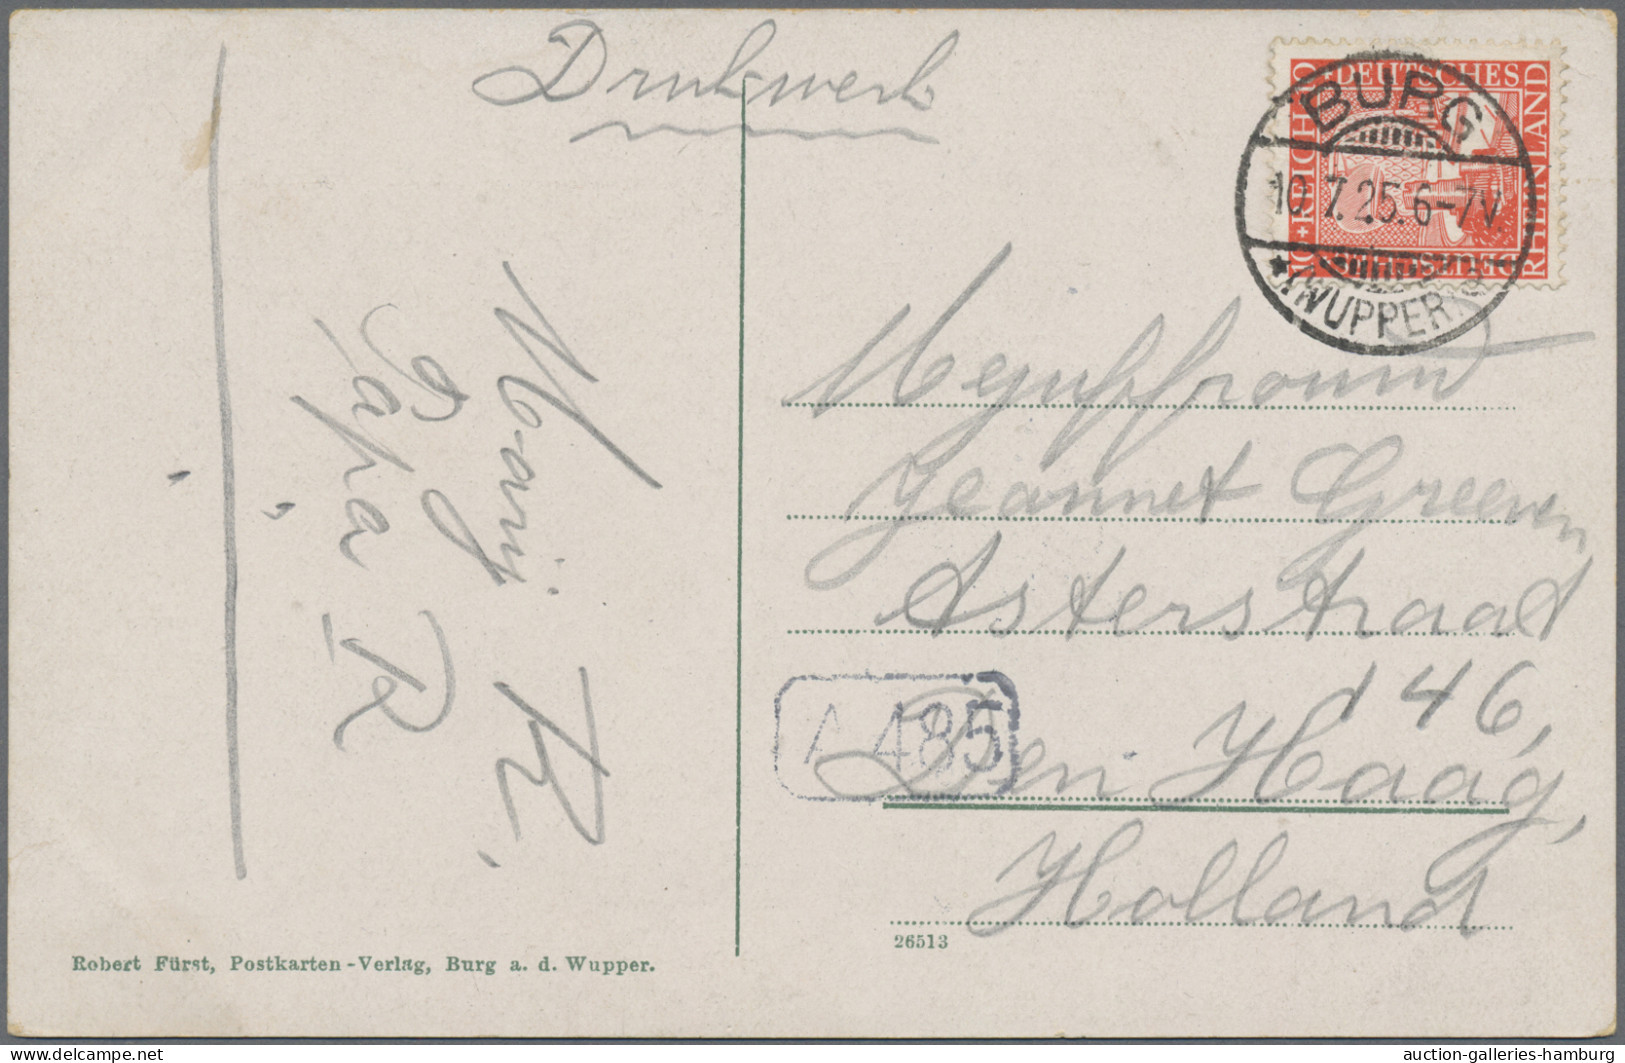 Drukwerk
DEUTSCHES
REICH
RHEINLAND
10
BURG
10.7.25.6-7V.
(WUPPER)
Mejuffrouw
Jeannet Greeven
Asterstraat
146,
Den Haag,
Holland
A 485
Papa
R.
26513
Robert Fürst, Postkarten-Verlag, Burg a. d. Wupper.
www.delcampe.net
auction-galleries-hamburg